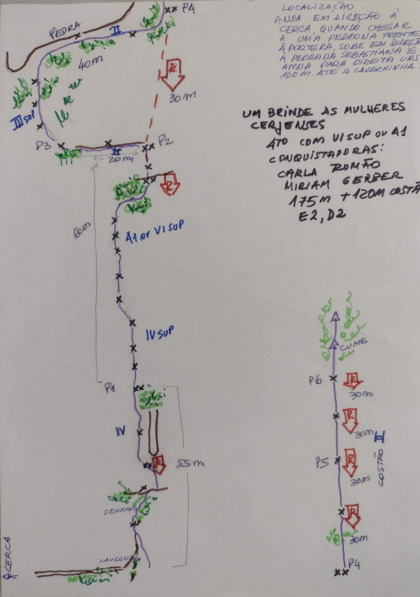 LOCALIZAÇÃO
ANDA EM DIREÇÃO À
CERCA, QUANDO CHEGAR
UMA PEDRONA FRENTE
À PORTEIRA, SOBE EM
A PEDRA DA SEBASTIANA E
ANDA PARA DIREITA UNS
100M ATÉ A CAVERNINHA.
UM BRINDE ÀS MULHERES
CERJENSES
4TO COM VI SUP OU A1
CONQUISTADORAS:
CARLA ROMÃO
MIRIAM GERBER
175M + 120M COSTÃ
E2, D2
P4
PEDRA
II
40M
R
30M
III SUP
P3
20M
P2
R
A1 OU VI SUP
IV SUP
P1
IV
R
55M
CERCA
CUME
P6
R
30M
R
30M
P5
R
30M
II
COSTÃO
R
30M
P4